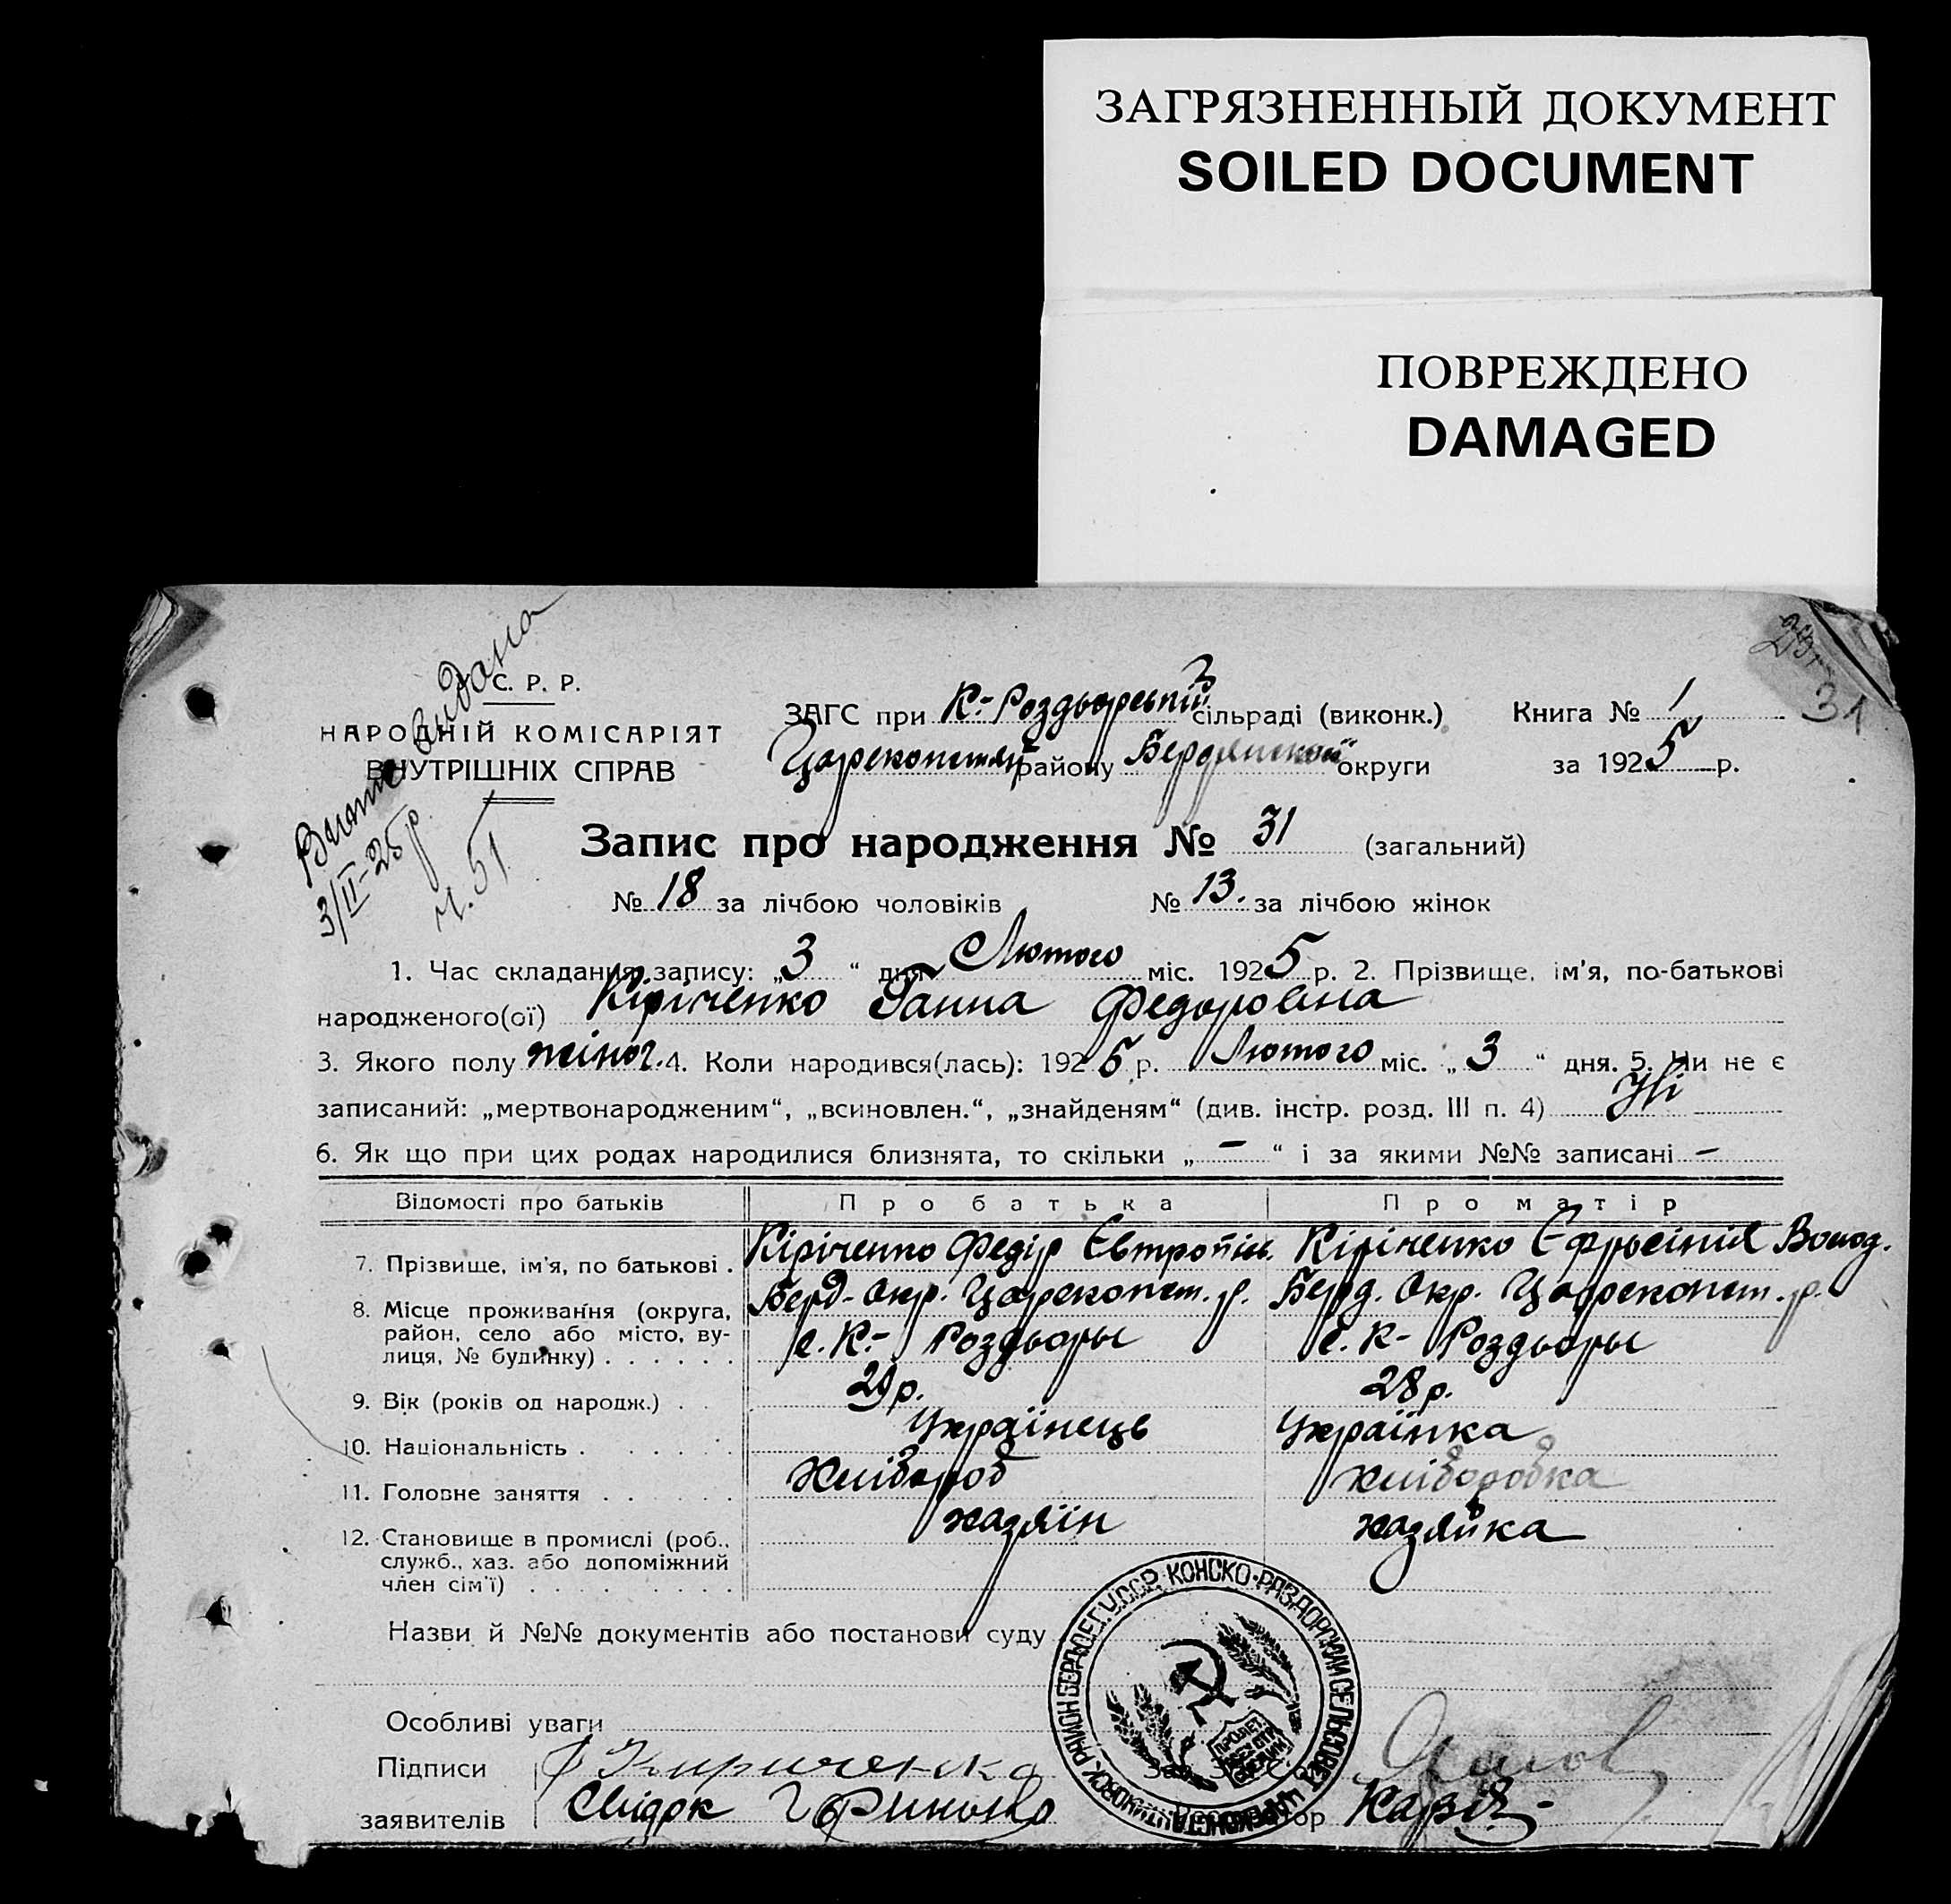 ЗАГРЯЗНЕННЫЙ ДОКУМЕНТ
SOILED DOCUMENT
ПОВРЕЖДЕНО
DAMAGED
31
С. Р. Р.
НАРОДНІЙ КОМІСАРІЯТ
ВНУТРІШНІХ СПРАВ
видана
3/II-25р
ч. 51
ЗАГС при К.-Роздьорській сільраді (виконк.) Книга № 1
Царекопстян району Бердянської округи за 1925 р.
Запис про народження № 31 (загальний)
№ 18 за лічбою чоловіків № 13. за лічбою жінок
1. Час складання запису: „3“ дня Лютого міс. 1925 р. 2. Прізвище, ім'я, по-батькові
народженого(ої) Кіріченко Ганна Федоровна
3. Якого полу жіноч. 4. Коли народився(лась): 1925 р. Лютого міс. „3“ дня. 5. Чи не є
записаний: „мертвонародженим“, „всиновлен.“, „знайденям“ (див. інстр. розд. III п. 4) Ні
6. Як що при цих родах народилися близнята, то скільки „ – “ і за якими №№ записані –
Відомості про батьків Про батька Про матір
7. Прізвище, ім'я, по батькові . Кіріченко Федір Євтропієв. Кіріченко Єфросінія Волод.
8. Місце проживання (округа, район, село або місто, вулиця, № будинку) . . . . . . Берд- Окр. Царекопст. р. Берд. Окр. Царекопст. р.
с. К.- Роздьоры с. К- Роздьоры
9. Вік (років од народж.) . . 29 р. 28 р.
10. Національність . . . . . . Українець Українка
11. Головне заняття . . . . . Хлібороб хліборобка
12. Становище в промислі (роб., служб., хаз. або допоміжний член сім'ї) . . . . . . . . . хазяїн хазяйка
Назви й №№ документів або постанови суду
Особливі уваги
Підписи Ф Кириченко
заявителів Свідок Гринько
КОНСКО-РАЗДОРСКИЙ СЕЛЬСОВЕТ